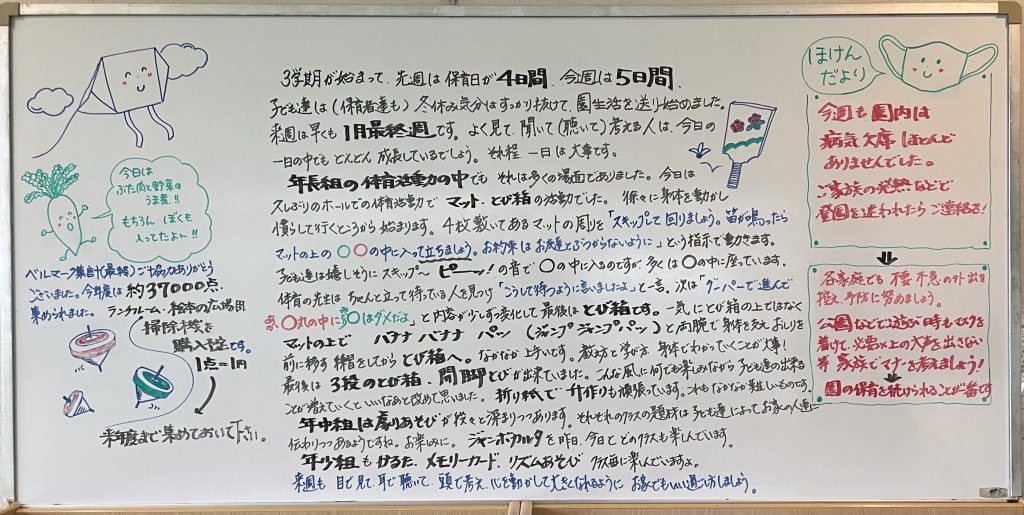 3学期が始まって、先週は保育日が4日間、今週は5日間、
子ども達は(保育者達も)冬休み気分はすっかり抜けて、園生活を送り始めました。
来週は早くも1月最終週です。よく見て、聞いて(聴いて)考える人は、今日の
一日の中でもどんどん成長しているでしょう。それ程一日は大事です。
年長組の体育活動の中でもそれは多くの場面でありました。今日は
久しぶりのホールでの体育活動でマット・とび箱の活動でした。徐々に身体を動かし
慣らして行くところから始まります。4枚敷いてあるマットの周りを「スキップして回りましょう。笛が鳴ったら
マットの上の〇〇の中に入って立ちましょう。お約束はお友達とぶつからないように」という指示で動きます。
子ども達は嬉しそうにスキップ〜ピーッ!の音で〇の中に入るのですが、多くは〇の中に座っています。
体育の先生はちゃんと立って待っている人を見つけ「こうして待つように言いましたよ」と一言。次は「グーパーで進んで
赤い〇丸の中に〇はダメだよ」と内容が少しずつ変化して最後はとび箱です。一気にとび箱の上ではなく
マットの上でバナナ バナナ パッ(ジャンプ ジャンプ パッ)と両腕で身体を支えおしりを
前に移す練習をしてからとび箱へ。なかなか上手いです。教え方と学び方身体でわかっていくことが大事!
最後は3段のとび箱、開脚とびが出来ていました。こんな風に何でも楽しみながら子ども達の出来る
ことが増えていくといいなあと改めて思いました。折り紙で升作りも頑張っています。これもなかなか難しいものです。
年中組は劇あそびが段々と深まりつつあります。それぞれのクラスの題材は子ども達によってお家の人達に
伝わりつつあるようですね。お楽しみに。ジャンボカルタを昨日、今日とどのクラスも楽しんでいます。
年少組もかるた、メモリーカード、リズムあそび クラス毎に楽しんでいますよ。
来週も目で見て、耳で聴いて、頭で考え、心を動かして大きくなれるようにお家でもいい過ごし方しましょう。
今日は
ぶた肉と野菜の
うま煮!!
もちろん ぼくも
入ってたよん!!
ベルマーク集計(最終)ご協力ありがとう
ございました。今年度は約37000点
集められました。
ランチルーム・絵本の広場用
掃除機を
購入予定です。
1点=1円
来年度まで集めておいて下さい。
ほけん
だより
今週も園内は
病気欠席ほとんど
ありませんでした。
ご家族の発熱などで
登園を迷われたらご連絡を!
各家庭でも不要不急の外出を
控え、予防に努めましょう。
公園などで遊ぶ時もマスクを
着けて、必要以上の大声を出さない
等家族でマナーを考えましょう!
園の保育を続けられることが一番です